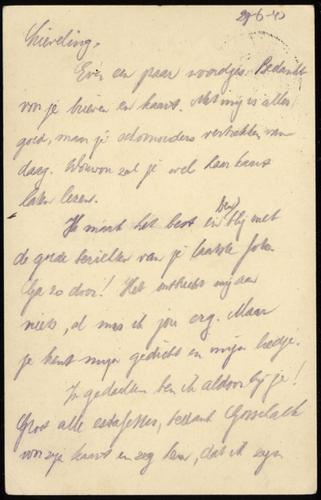 27-6-40
Lieveling,
Even een paar woordjes. Bedankt
voor je brieven en kaart. Met mij is alles
goed, maar je schoonouders vertrekken van
daag. Wouwon zal je wel haar kaart
laten lezen.
Ik maak het best en ben blij met
de goede berichten van je laatste
Ga zo door! Het ontbreekt mij aan
niets, al mis ik jou erg. Maar
je kent mijn gedicht en mijn liedje.
In gedachten ben ik aldoor bij je!
Groet alle estafettes, bedank
voor zijn kaart en zeg hem, dat ik zijn